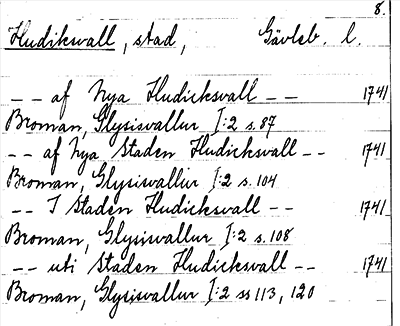 8.
Hudiksvall, stad, Gävleb. l.
-- af Nya Hudicksvall -- 1741
Broman, Glysisvallur I:2 s. 87
-- af Nya Staden Hudicksvall -- 1741
Broman, Glysisvallur I:2 s. 104
-- I Staden Hudicksvall -- 1741
Broman, Glysisvallur I:2 s. 108
-- uti Staden Hudicksvall -- 1741
Broman, Glysisvallur I:2 ss 113, 120